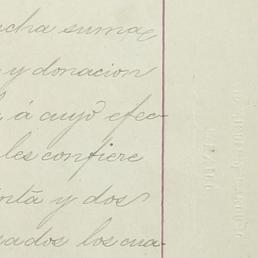 cha suma
y donacion
á cuyo efec-
les confiere
y dos
los cua-